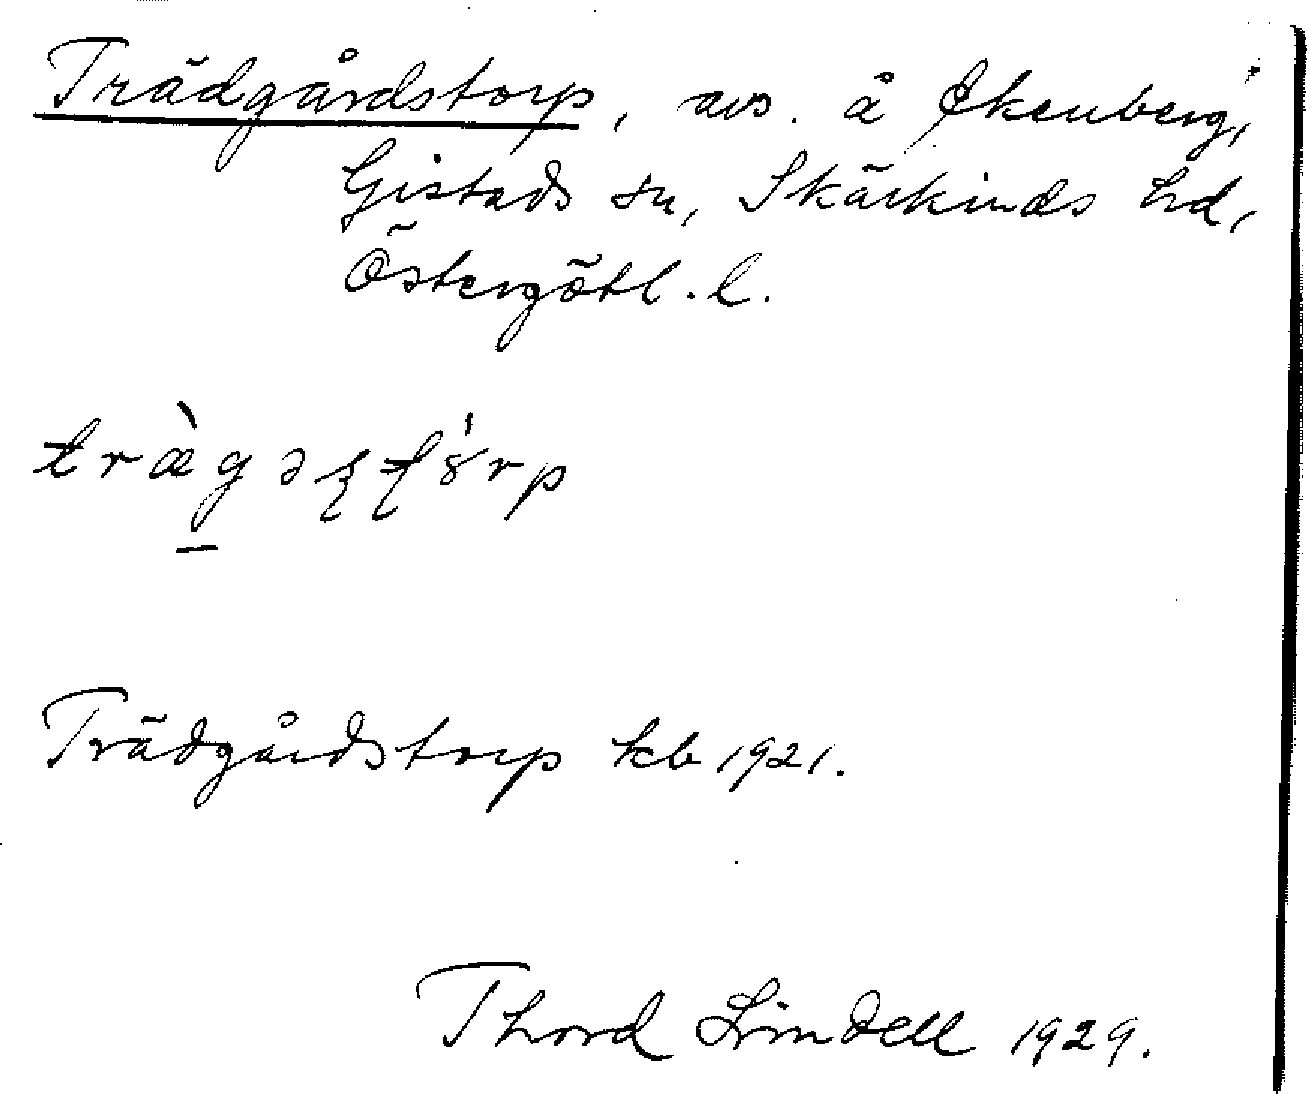 Trädgårdstorp, avs. å Ekenberg,
Gistads sn, Skärkinds hd,
Östergötl. l.
Trädgårdstorp kb 1921.
Thord Lindell 1929.